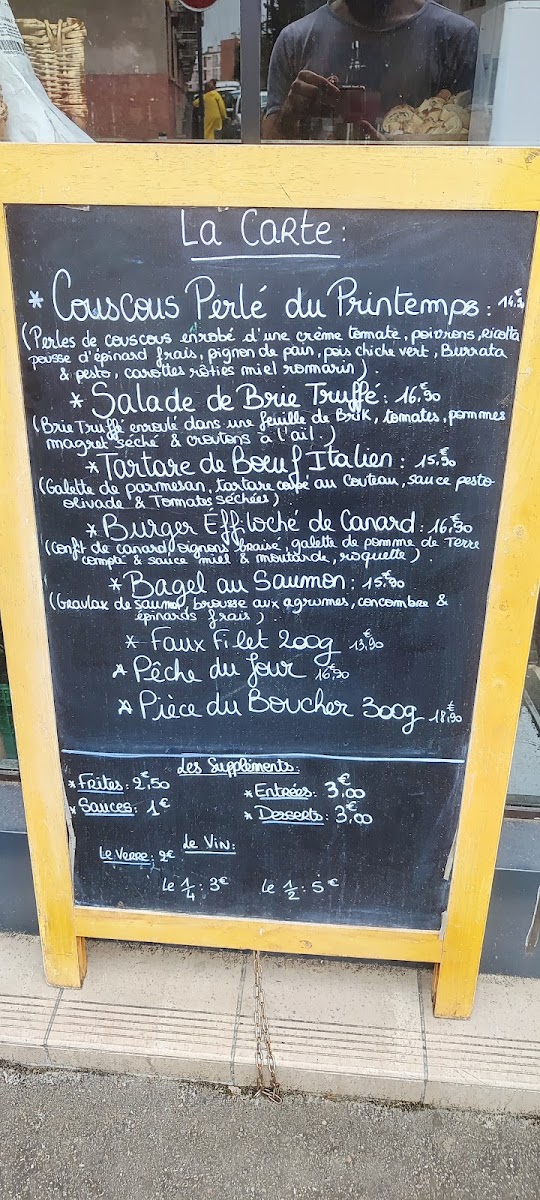 La Carte:
* Couscous Perlé du Printemps: 14,€
(Perles de couscous enrobé d'une crème tomate, poivrons, Ricotta
pousse d'épinard frais, pignon de pain, pois chiche vert, Burrata
& pesto, carottes rôties miel romarin)
* Salade de Brie Truffé: 16,€90
(Brie Truffé enroulé dans une feuille de Brik, tomates, pommes
magret séché & croutons à l'ail.)
* Tartare de Bœuf Italien: 15,€90
(Galette de parmesan, tartare coupé au couteau, sauce pesto
olivade & Tomates séchées)
* Burger Éffiloché de Canard: 16,€90
(Confit de canard, oignons braisé, galette de pomme de Terre
compté & sauce miel & moutarde, roquette)
* Bagel au Saumon: 15,€90
(Gravlax de saumon, brousse aux agrumes, concombre &
épinards frais)
* Faux Filet 200g 13,€90
* Pêche du Jour 16,€90
* Pièce du Boucher 300g 18,€90
Les Suppléments:
* Frites: 2,€50
* Entrées: 3,€00
* Sauces: 1€
* Desserts: 3,€00
Le Vin:
Le Verre: 2€
Le 1/4: 3€ Le 1/2: 5€